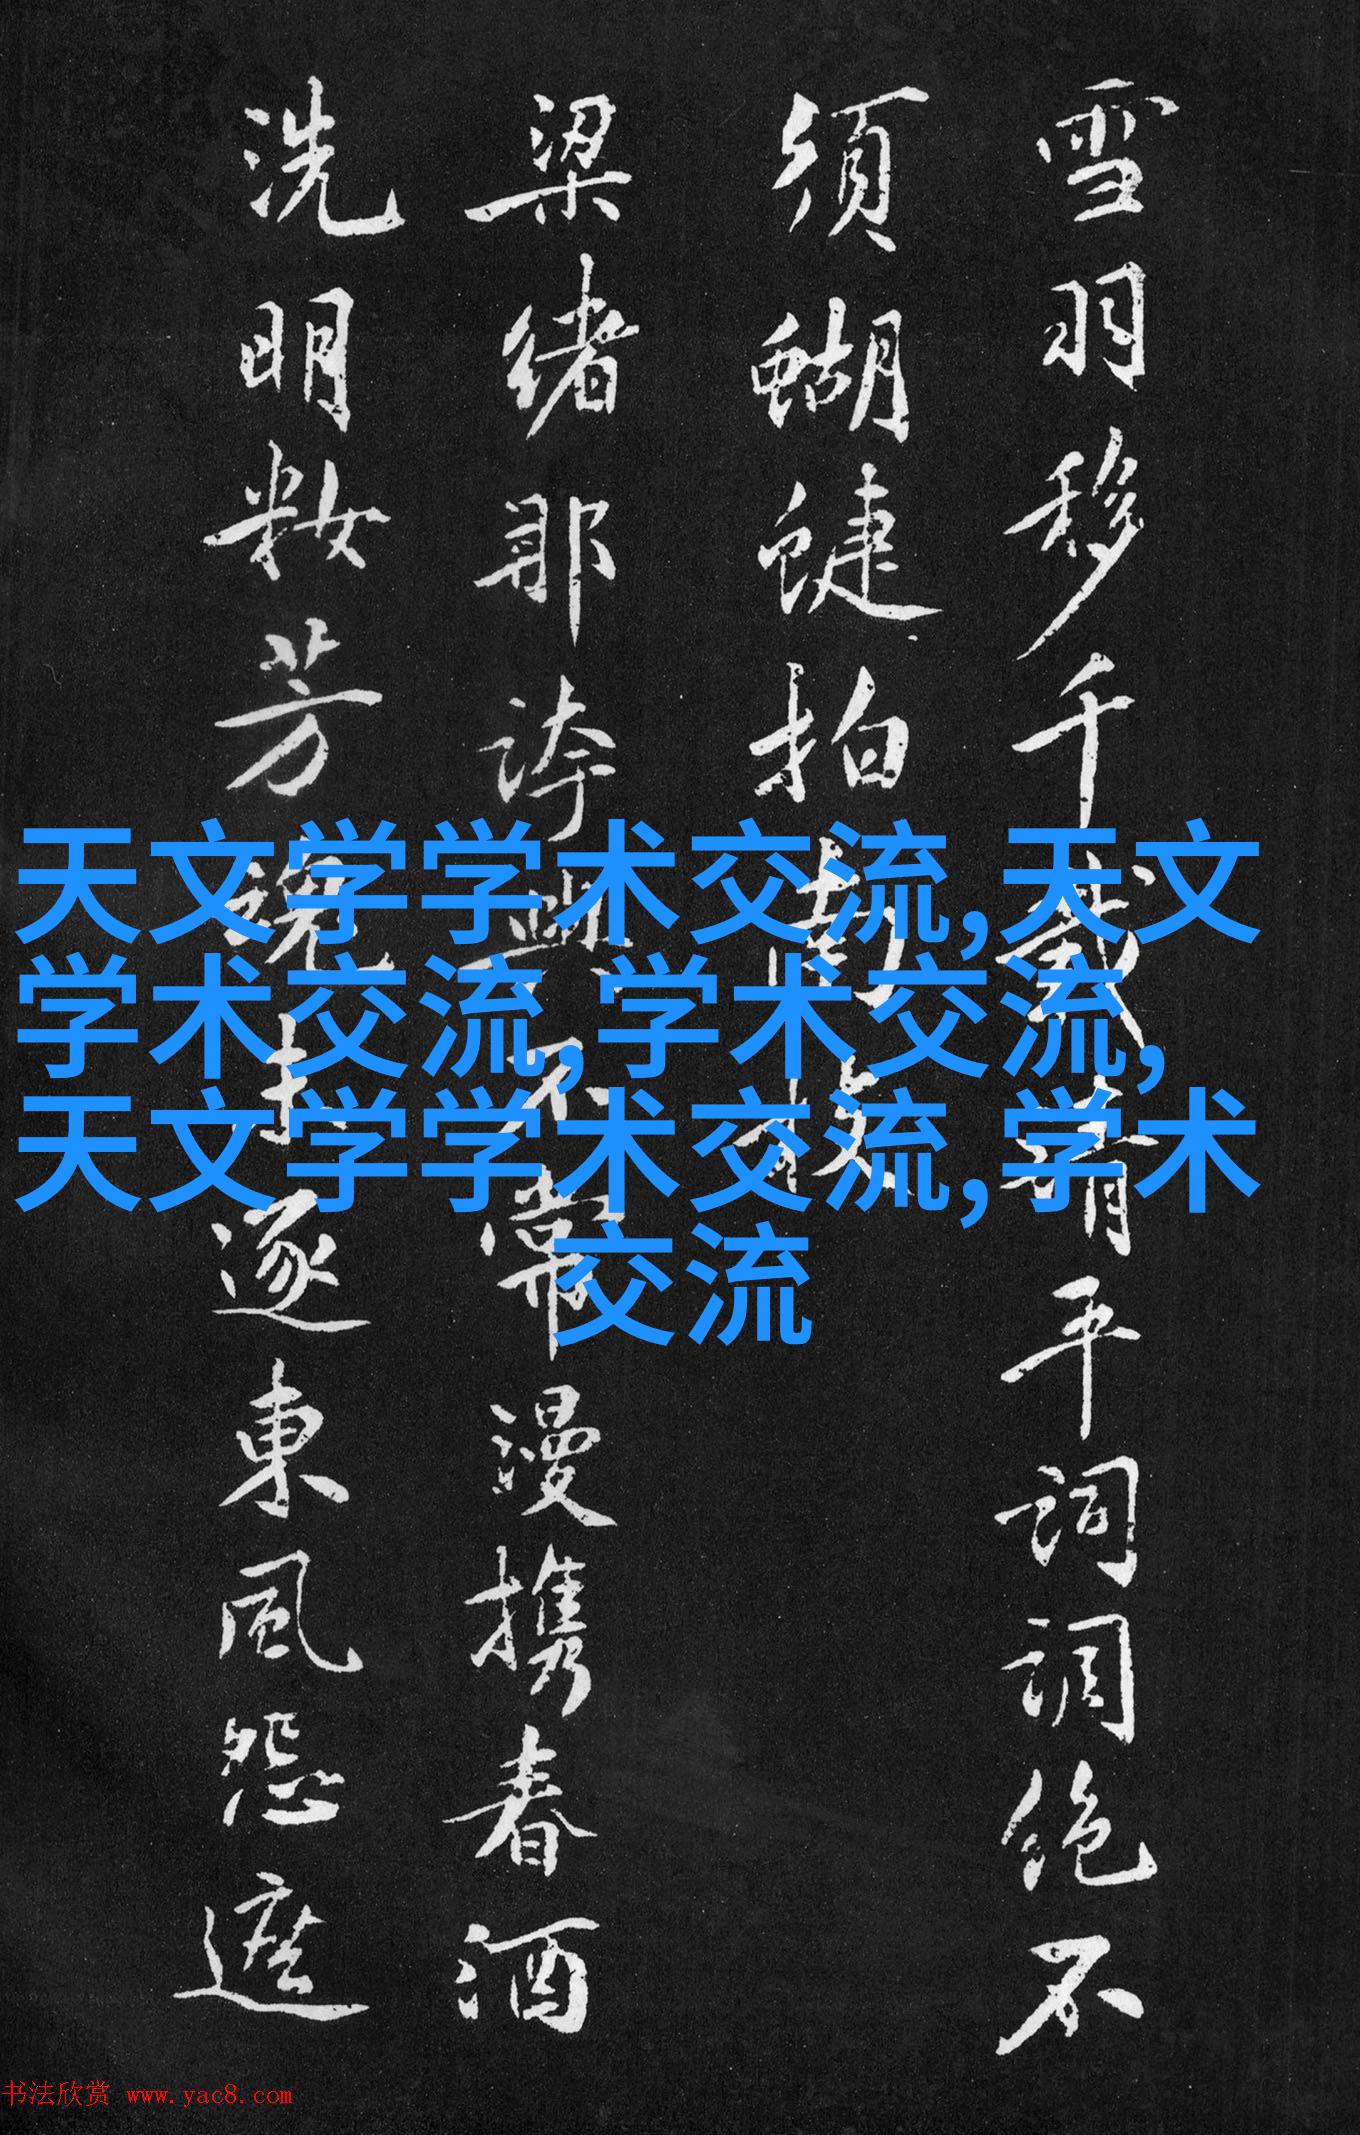 雪羽移千載清平词调绝不
須蝴蝶拍
梁绪那誇興不常漫携春酒
洗明粧芳魂未逐東風怨遮
天文学学术交流,天文
学术交流,学术交流,
天文学学术交流,学术
交流
书法欣赏 www.yac8.com